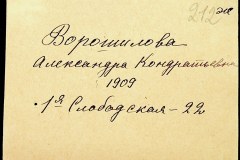 212
Ворошилова
Александра Кондратьевна
1909
1ая Слободская - 22